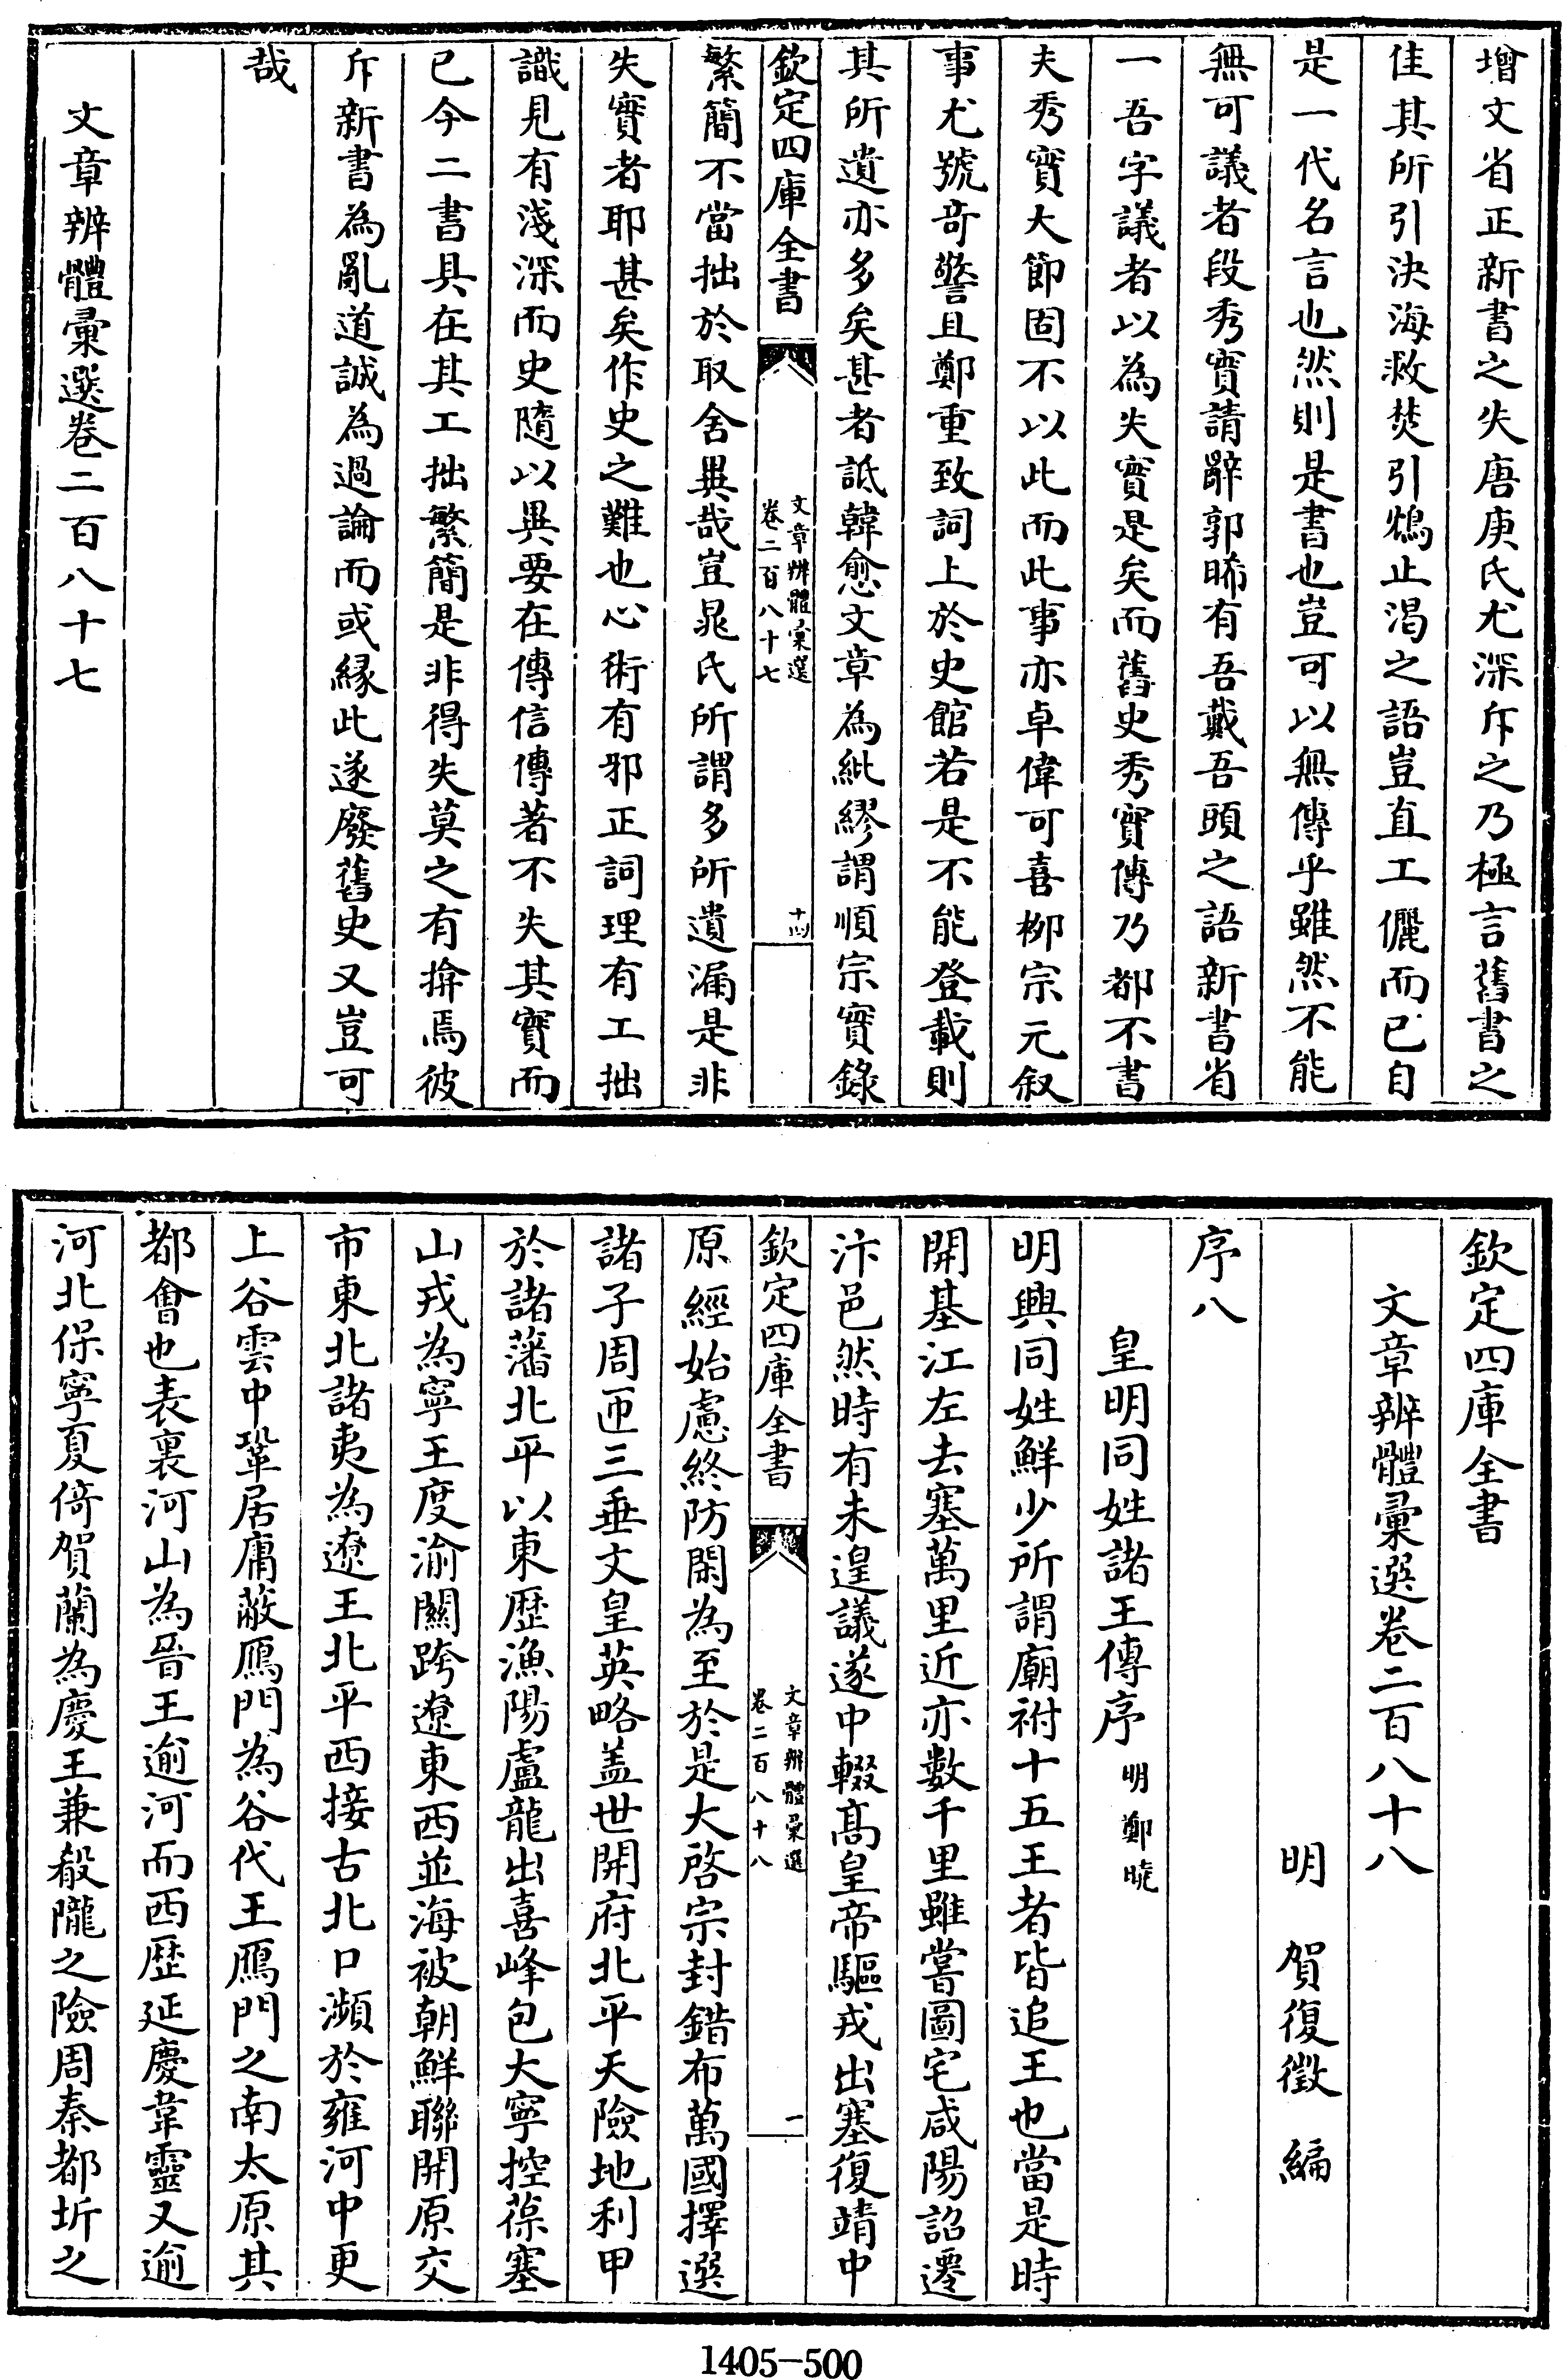 增文省正新書之失唐庚氏尤深斥之乃極言舊書之
佳其所引決海救焚引鴆止渴之語豈直工儷而已自
是一代名言也然則是書也豈可以無傳乎雖然不能
無可議者段秀實請辭郭晞有吾戴吾頭之語新書省
一吾字議者以為失實是矣而舊史秀實傳乃都不書
夫秀實大節固不以此而此事亦卓偉可喜栁宗元叙
事尤號奇警且鄭重致詞上於史館若是不能登載則
其所遺亦多矣甚者詆韓愈文章為紕繆謂順宗實錄
欽定四庫全書
文章辨體彙選
卷二百八十七
十四
繁簡不當拙於取舍異哉豈晁氏所謂多所遺漏是非
失實者耶甚矣作史之難也心術有邪正詞理有工拙
識見有淺深而史隨以異要在傳信傳著不失其實而
已今二書具在其工拙繁簡是非得失莫之有揜焉彼
斥新書為亂道誠為過論而或緣此遂廢舊史又豈可
哉
文章辨體彙選卷二百八十七
欽定四庫全書
文章辨體彙選卷二百八十八
明 賀復徵 編
序八
皇明同姓諸王傳序 明鄭曉
明興同姓鮮少所謂廟祔十五王者皆追王也當是時
開基江左去塞萬里近亦數千里雖嘗圖宅咸陽詔遷
汴邑然時有未遑議遂中輟髙皇帝驅戎出塞復靖中
欽定四庫全書
文章辨體彙選
卷二百八十八
一
原經始慮終防閑為至於是大啓宗封錯布萬國擇選
諸子周匝三垂文皇英略盖世開府北平天險地利甲
於諸藩北平以東歴漁陽盧龍出喜峰包大寧控葆塞
山戎為寧王度渝關跨遼東西並海被朝鮮聯開原交
市東北諸夷為遼王北平西接古北口瀕於雍河中更
上谷雲中鞏居庸蔽鴈門為谷代王鴈門之南太原其
都會也表裏河山為晉王逾河而西歴延慶韋靈又逾
河北保寧夏倚賀蘭為慶王兼殽隴之險周秦都圻之
1405-500